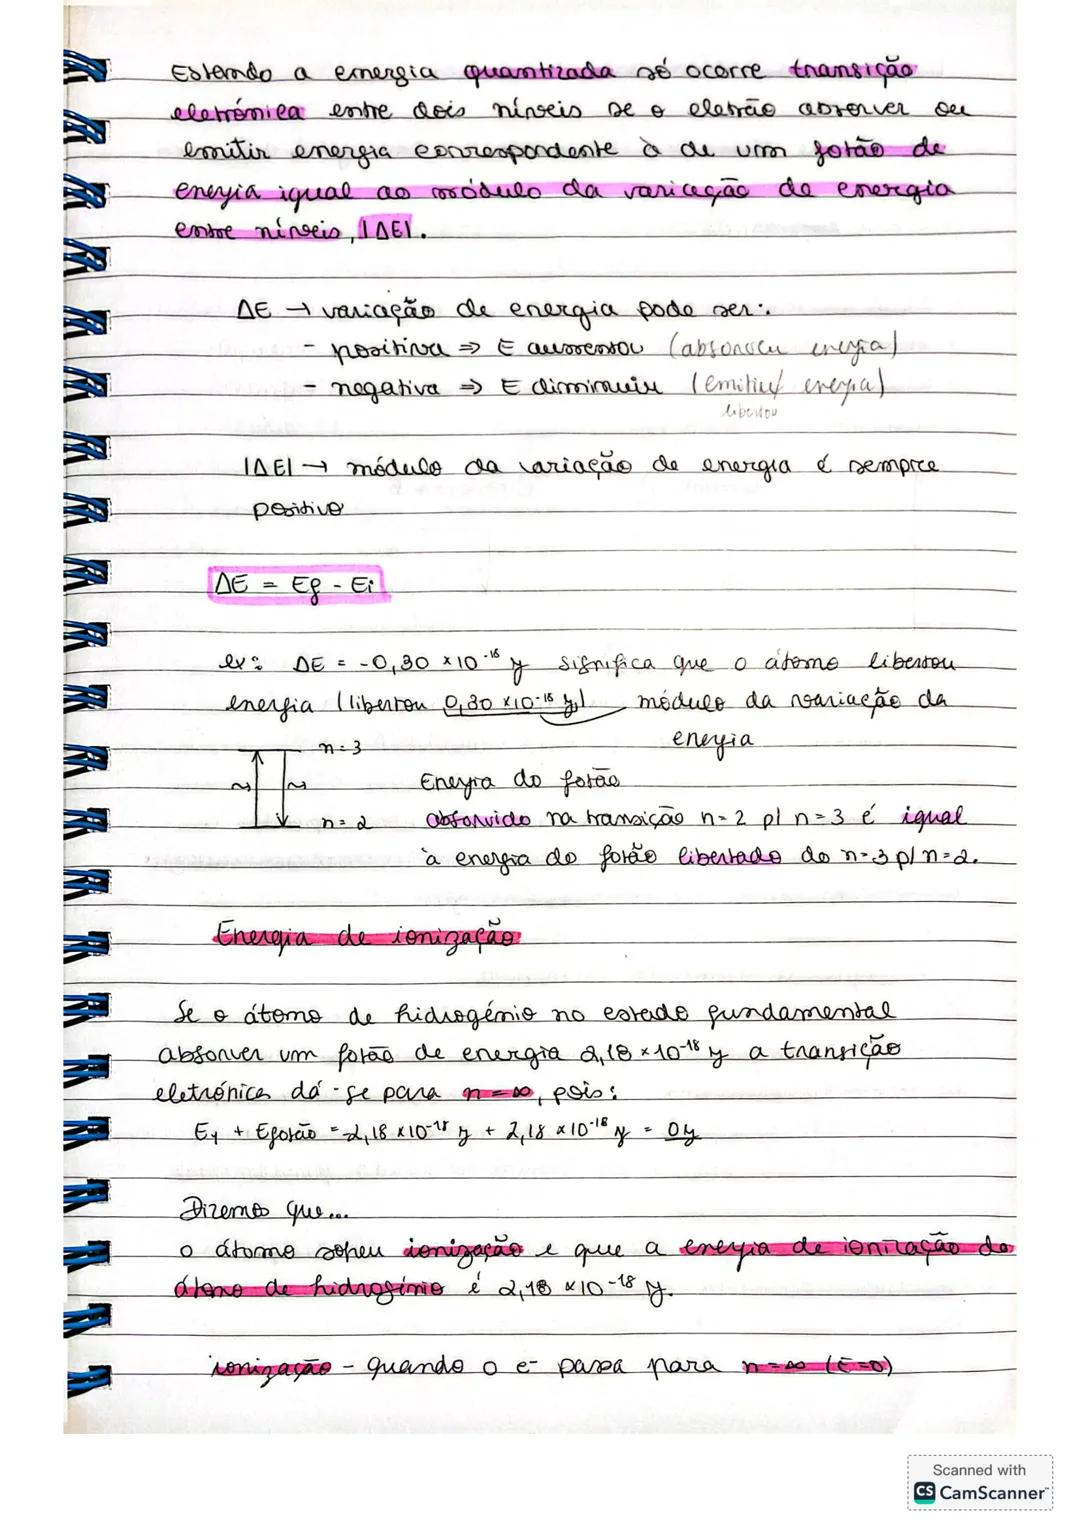 Estando a energia quantizada só ocorre transição
eletrónica entre dois níveis se o eletrão absorver ou
emitir energia correspondente à de um fotão de
energia igual ao módulo da variação de energia
entre níveis, |ΔE|.
ΔE → variação de energia pode ser:
- positiva ⇒ E aumentou (absorveu energia)
- negativa ⇒ E diminuiu (emitiu energia)
libertou
|ΔE| → módulo da variação de energia é sempre
positivo
ΔE = Ef - Ei
ex: ΔE = -0,30 × 10⁻¹⁸ J significa que o átomo libertou
energia (libertou 0,30 × 10⁻¹⁸ J) módulo da variação da
energia
n = 3
Energia do fotão
n = 2 absorvido na transição n = 2 p/ n = 3 é igual
à energia do fotão libertado do n = 3 p/ n = 2.
Energia de ionização
Se o átomo de hidrogénio no estado fundamental
absorver um fotão de energia 2,18 × 10⁻¹⁸ J a transição
eletrónica dá-se para n = ∞, pois:
E₁ + Efotão = -2,18 × 10⁻¹⁸ J + 2,18 × 10⁻¹⁸ J = 0J
Dizemos que...
o átomo sofreu ionização e que a energia de ionização do
átomo de hidrogénio é 2,18 × 10⁻¹⁸ J.
ionização - quando o e⁻ passa para n = ∞ (E = 0)
Scanned with
CS CamScanner